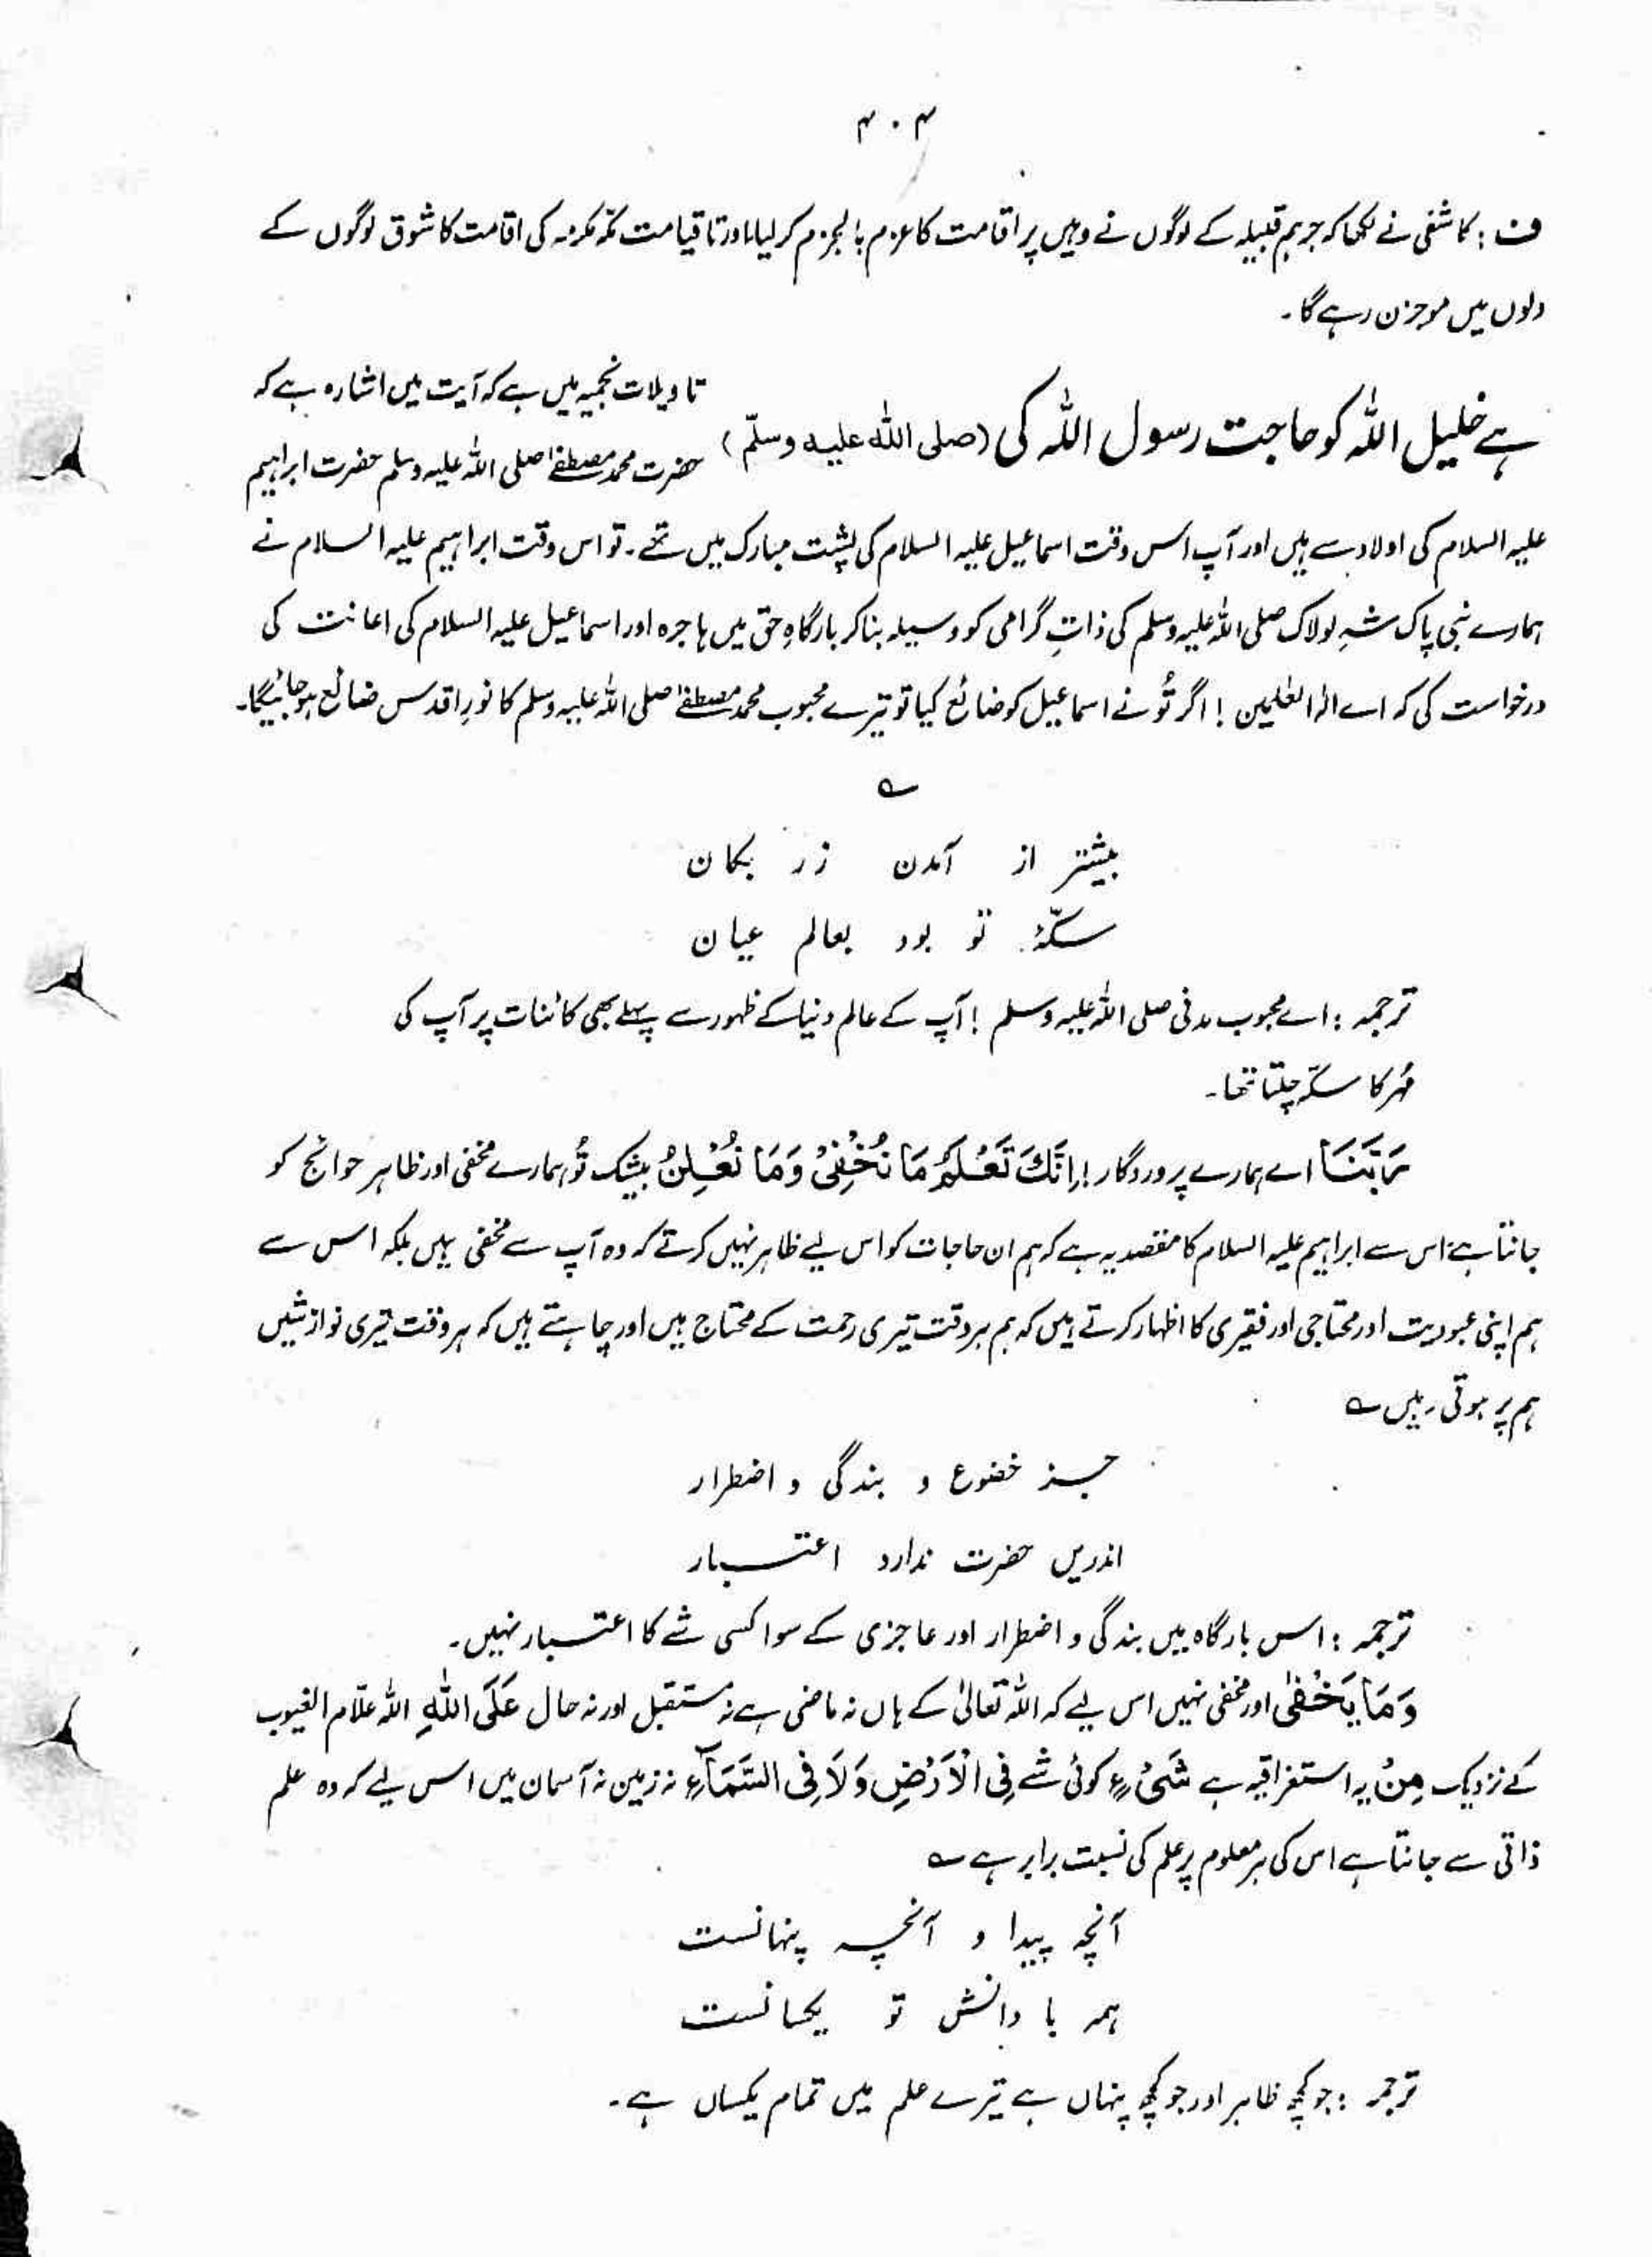 ۳۰۳
ف : کاشفی نے لکھا کہ جرہم قبیلہ کے لوگوں نے وہیں پر اقامت کا عزم بالجزم کر لیا اور تا قیامت مکّہ مکرمہ کی اقامت کا شوق لوگوں کے
دلوں میں موجزن رہے گا ۔
ہے خلیل اللہ کو حاجت رسول اللہ کی (صلی اللہ علیہ وسلّم)
تاویلات نجمیہ میں ہے کہ آیت میں اشارہ ہے کہ
حضرت محمد مصطفےٰ صلی اللہ علیہ وسلم حضرت ابراہیم
علیہ السلام کی اولاد سے ہیں اور آپ اس وقت اسماعیل علیہ السلام کی پشت مبارک میں تھے ۔ تو اس وقت ابراہیم علیہ السلام نے
ہمارے نبی پاک شہِ لولاک صلی اللہ علیہ وسلم کی ذاتِ گرامی کو وسیلہ بنا کر بارگاہِ حق میں ہاجرہ اور اسماعیل علیہ السلام کی اعانت کی
درخواست کی کہ اے الٰہ العٰلمین ! اگر تُو نے اسماعیل کو ضائع کیا تو تیرے محبوب محمد مصطفےٰ صلی اللہ علیہ وسلم کا نورِ اقدس ضائع ہو جائیگا۔
؎
بیشتر از آمدن زر بکان
سکّۂ تو بود بعالم عیان
ترجمہ : اے محبوب مدنی صلی اللہ علیہ وسلم ! آپ کے عالم دنیا کے ظہور سے پہلے بھی کائنات پر آپ کی
مُہر کا سکّہ چلتا تھا ۔
رَبَّنَا اے ہمارے پروردگار ! اِنَّكَ تَعْلَمُ مَا نُخْفِیْ وَمَا نُعْلِنُ بیشک تُو ہمارے مخفی اور ظاہر حوائج کو
جانتا ہے اس سے ابراہیم علیہ السلام کا مقصد یہ ہے کہ ہم ان حاجات کو اس لیے ظاہر نہیں کرتے کہ وہ آپ سے مخفی ہیں بلکہ اس سے
ہم اپنی عبودیت اور محتاجی اور فقیری کا اظہار کرتے ہیں کہ ہم ہر وقت تیری رحمت کے محتاج ہیں اور چاہتے ہیں کہ ہر وقت تیری نوازشیں
ہم پر ہوتی رہیں ؎
جز خضوع و بندگی و اضطرار
اندریں حضرت ندارد اعتبار
ترجمہ : اس بارگاہ میں بندگی و اضطرار اور عاجزی کے سوا کسی شے کا اعتبار نہیں ۔
وَمَا يَخْفٰى اور مخفی نہیں اس لیے کہ اللہ تعالیٰ کے ہاں نہ ماضی ہے نہ مستقبل اور نہ حال عَلَى اللّٰهِ اللہ علّام الغیوب
کے نزدیک مِنْ یہ استغراقیہ ہے شَیْءٍ کوئی شے فِی الْاَرْضِ وَلَا فِی السَّمَآءِ نہ زمین نہ آسمان میں اس لیے کہ وہ علم
ذاتی سے جانتا ہے اس کی ہر معلوم پر علم کی نسبت برابر ہے ؎
آنچہ پیدا و آنچہ پنہانست
ہمہ با دانش تو یکسانست
ترجمہ : جو کچھ ظاہر اور جو کچھ پنہاں ہے تیرے علم میں تمام یکساں ہے ۔